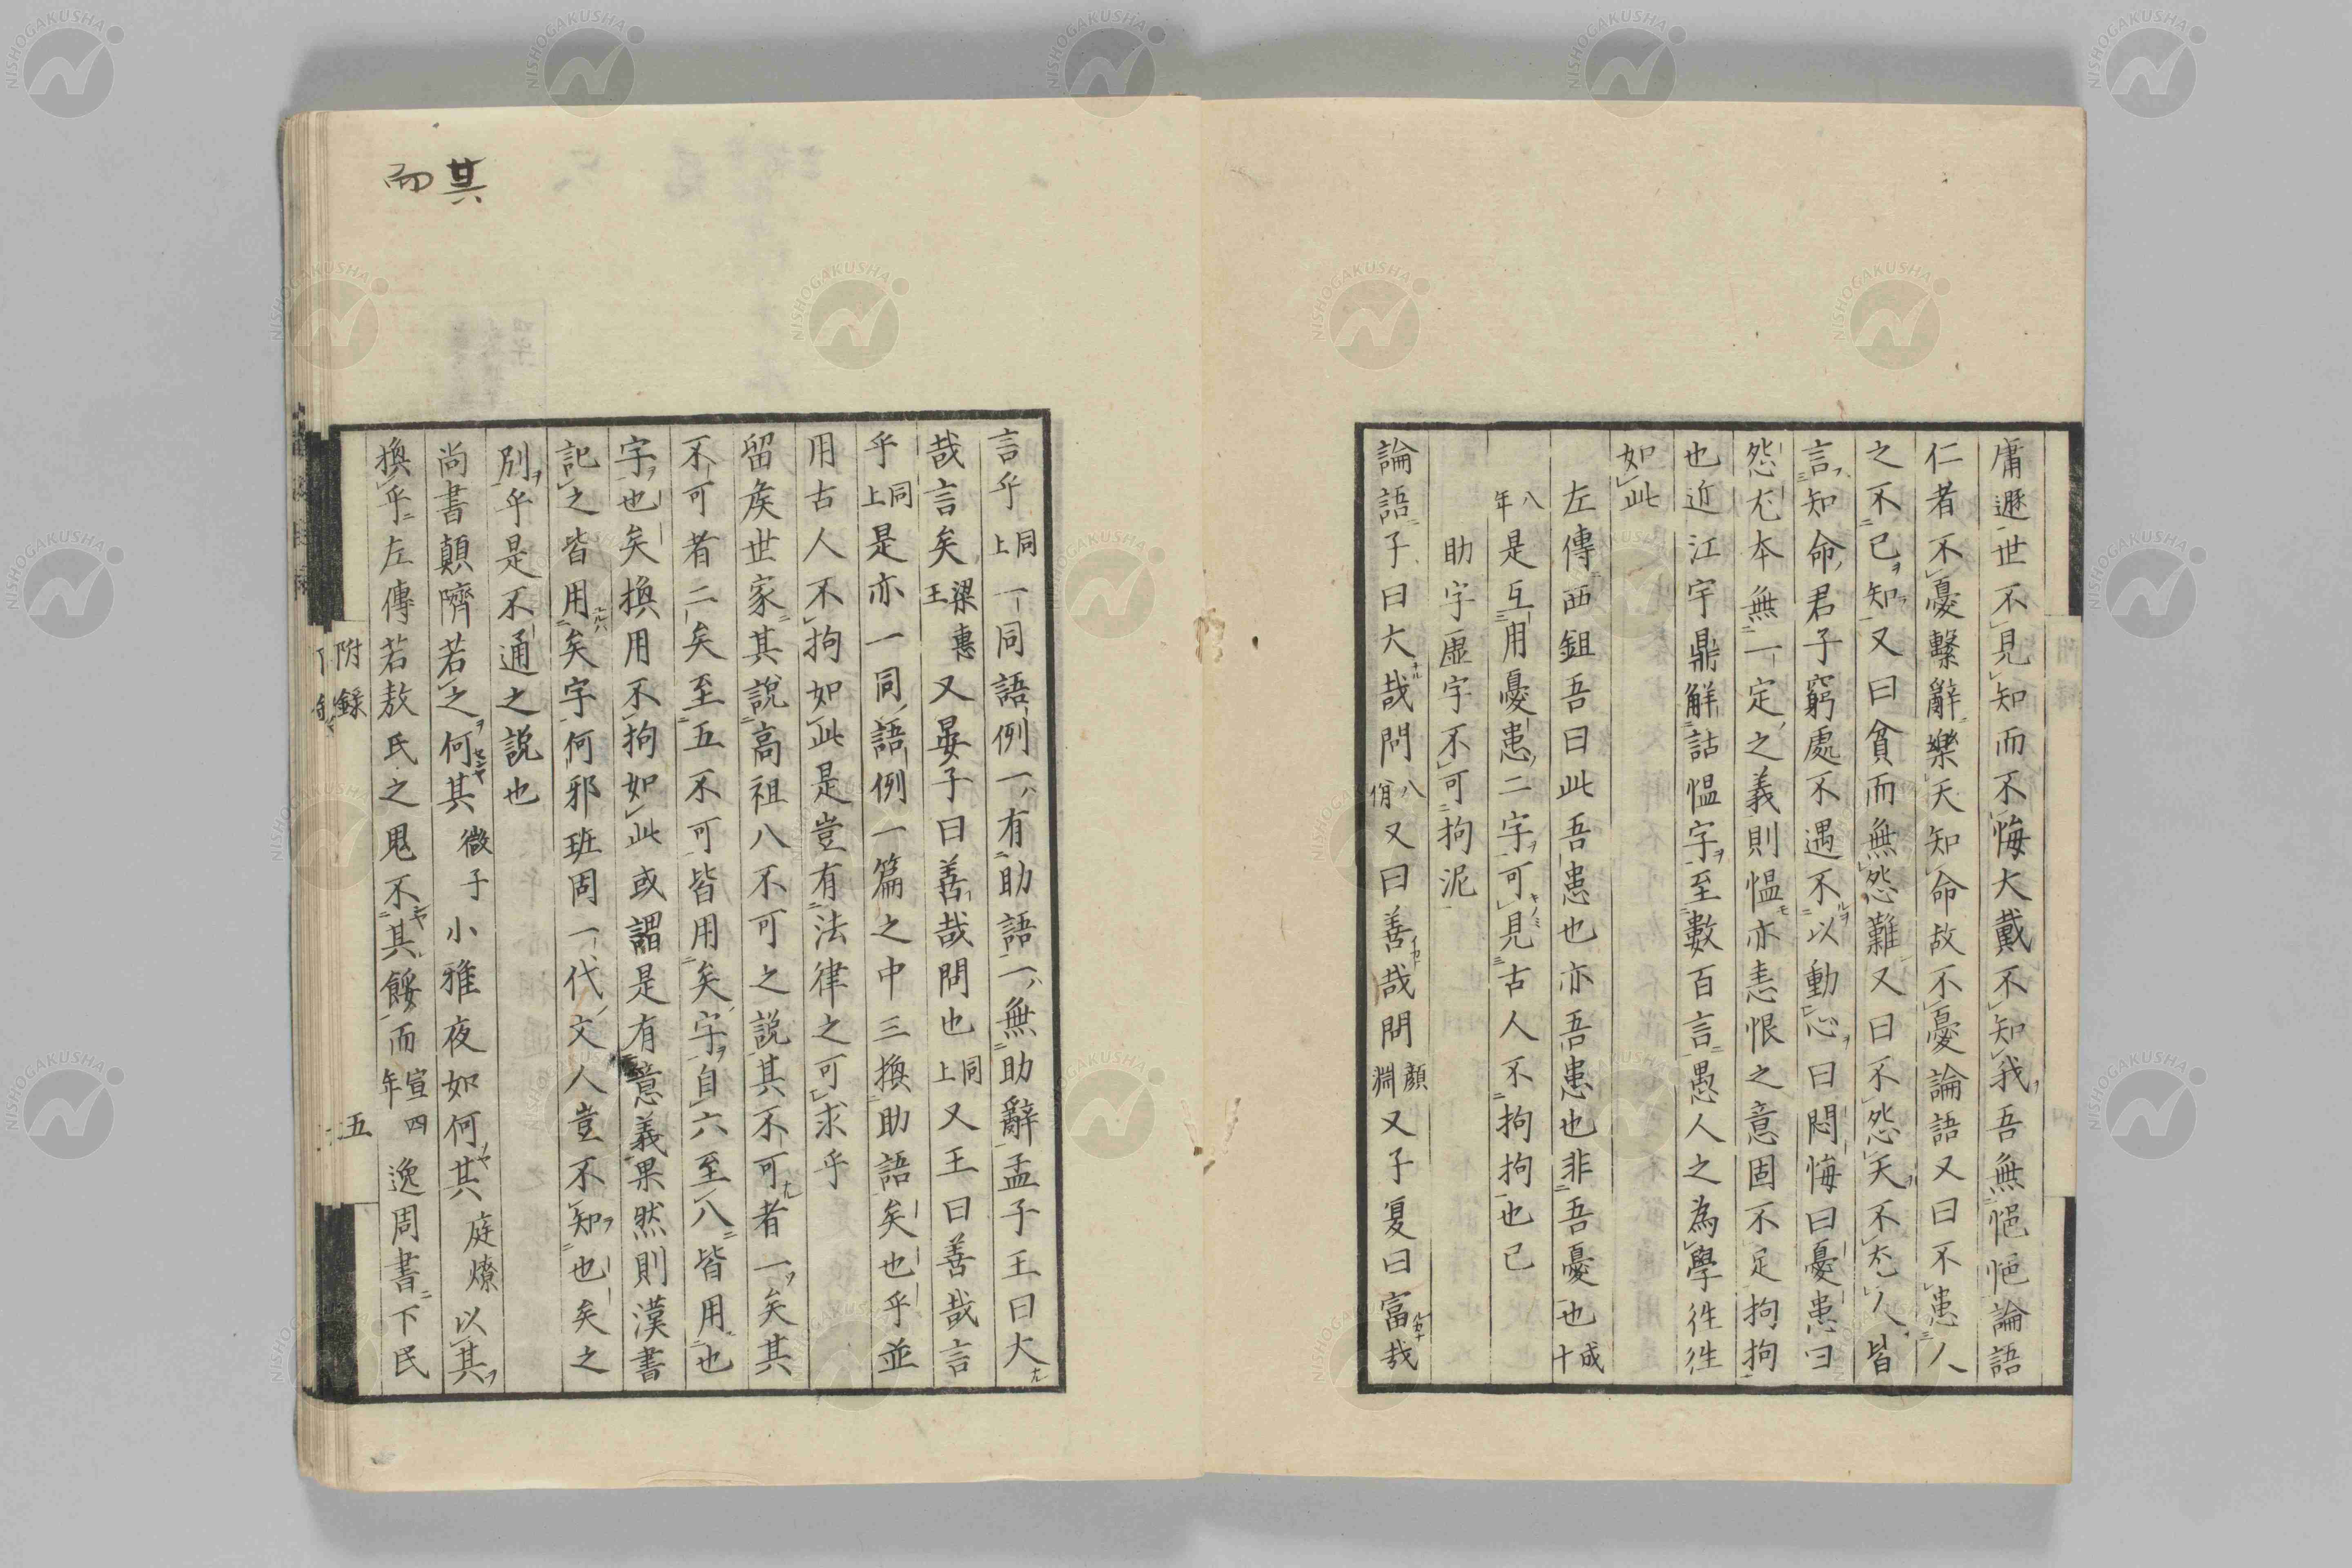 庸遯世不見知而不悔大戴不知我吾無悒悒論語
仁者不憂繫辭樂天知命故不憂論語又曰不患人
之不己知又曰貧而無怨難又曰不怨天不尤人皆
言知命君子窮處不遇不以動心曰悶悔曰憂患曰
怨尤本無一定之義則慍亦恚恨之意固不足拘拘
也近江宇鼎解詁慍字至數百言愚人之為學往往
如此
左傳西鉏吾曰此吾患也亦吾患也非吾憂也成十
八年是互用憂患二字可見古人不拘拘也已
助字虛字不可拘泥
論語子曰大哉問八佾又曰善哉問顏淵又子夏曰富哉
言乎同上一同語例一有助語一無助辭孟子王曰大
哉言矣梁惠王又晏子曰善哉問也同上又王曰善哉言
乎同上是亦一同語例一篇之中三換助語矣也乎並
用古人不拘如此是豈有法律之可求乎
留矦世家其說高祖八不可之說其不可者一矣其
不可者二矣至五不可皆用矣字自六至八皆用也
字也矣換用不拘如此或謂是有意義果然則漢書
記之皆用矣字何邪班固一代文人豈不知也矣之
別乎是不通之說也
尚書顛隮若之何其微子小雅夜如何其庭燎以其
換乎左傳若敖氏之鬼不其餒而宣四年逸周書下民
附録
五
其
而
NISHOGAKUSHA